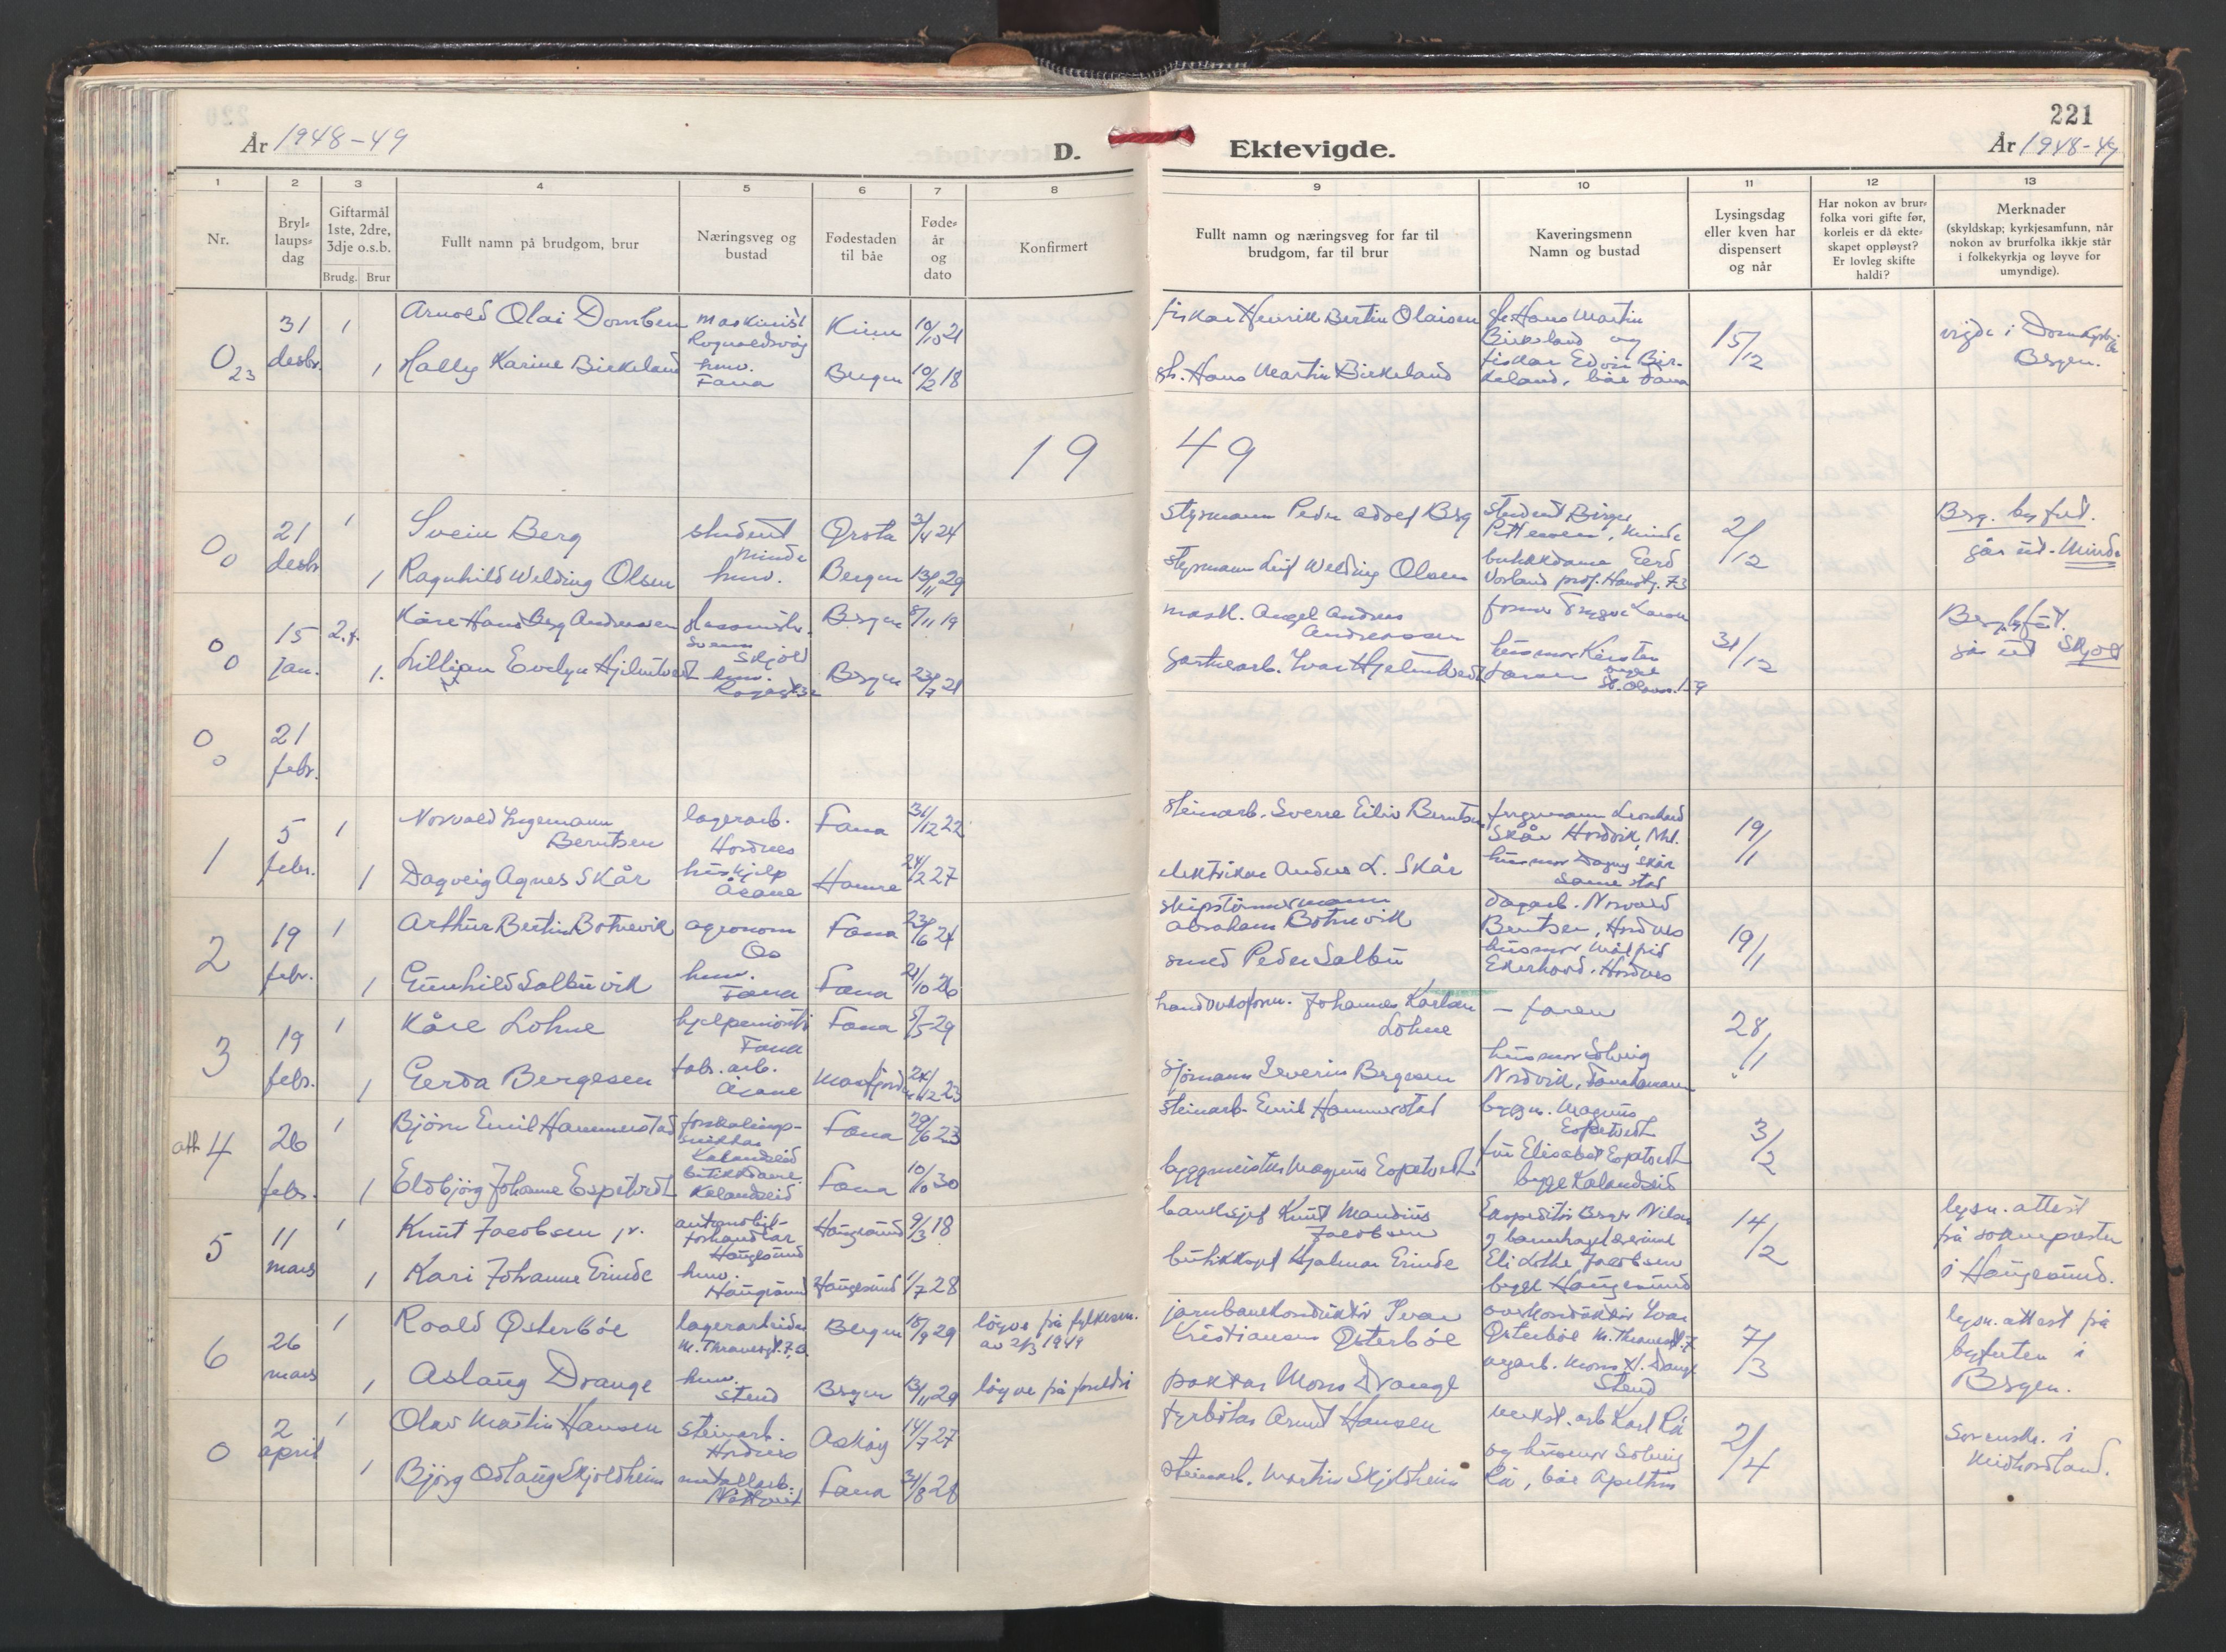 221
År 1948-49
D.
Ektevigde.
År 1948-49
1 2 3 4 5 6 7 8 9 10 11 12 13
Nr.
Bryl-
laups-
dag
Giftarmål
1ste, 2dre,
3dje o.s.b.
Brudg. Brur
Fullt namn på brudgom, brur
Næringsveg og
bustad
Fødestaden
til båe
Føde-
år
og
dato
Konfirmert
Fullt namn og næringsveg for far til
brudgom, far til brur
Kaveringsmenn
Namn og bustad
Lysingsdag
eller kven har
dispensert
og når
Har nokon av brur-
folka vori gifte før,
korleis er då ekte-
skapet oppløyst?
Er lovleg skifte
haldi?
Merknader
(skyldskap; kyrkjesamfunn, når
nokon av brurfolka ikkje står
i folkekyrkja og løyve for
umyndige).
0 23
31 desbr.
1
Arnold Olai Domben
maskinist
Kinn
10/10 21
fiskar Henrik Bertin Olaisen
gh. Hans Martin
Birkeland og
15/12
1
Hally Karine Birkeland
hmv.
Fana
Bergen
10/2 18
gh. Hans Martin Birkeland
fiskar Edvin Bir-
keland, båe Fana
vigde i Domkyrkja
Bergen.
19 49
0 0
21 desbr
1
Svein Berg
student
Minde
Ørsta
3/4 24
styrmann Peder Adolf Berg
student Birger
2/12
Berg. byfut.
går ut. Minde
1
Ragnhild Welding Olsen
hmv.
Bergen
13/11 29
styrmann Leif Welding Olsen
butikkdame Gerd
Vorland prof. Hanstg. 73
0 0
15 jan.
2.f.
Kåre Hans Berg Andreassen
Skjold
Bergen
8/11 19
mask. Angel Andreas
Andreassen
31/12
går ut Skjold
1.
Lillian Evelyn Hjelmtvedt
hmv.
Bergen
23/7 21
gartnarb. Ivar Hjelmtvedt
husmor Kirsten
Larsen
0 0
21 febr.
1
5 febr.
1
Norvald Ingemann
Berntsen
lagerarb.
Hordnes
Fana
31/12 22
steinarb. Sverre Eiliv Berntsen
Skår Hordvik, Nhl.
19/1
1
Dagveig Agnes Skår
huskjelp
Åsane
Hamre
24/2 27
elektrikar Anders L. Skår
husmor Dagny Skår
same stad
2
19 febr.
1
Arthur Bertin Botnevik
agronom
Os
Fana
23/6 24
skipstømmermann
Abraham Botnevik
dagarb. Norvald
Berntsen, Hordnes
19/1
1
Gunhild Salbuvik
hmv.
Fana
Fana
21/10 26
smed Peder Salbu
husmor Målfrid
Ekerhovd. Hordnes
3
19 febr.
1
Kåre Lohne
hjelpemontø
Fana
Fana
5/5 29
Johannes Karlsen
Lohne
- faren
28/1
1
Gerda Bergesen
fab. arb.
Åsane
Masfjorden
24/12 23
sjømann Severin Bergesen
husmor Solveig
Nordvik, Fanahamaren
att 4
26 febr.
1
Bjørn Emil Hammerstad
forskalings-
snikkar
Kalandseid
Fana
29/6 23
steinarb. Emil Hammerstad
byggm. Magnus
Espetvedt
3/2
1
Eldbjørg Johanne Espetvedt
butikkdame
Kalandseid
Fana
10/10 30
byggmeister Magnus Espetvedt
fru Elisabet Espetvedt
begge Kalandseid
5
11 mars
1
Knut Jacobsen jr.
automobil-
forhandlar
Haugesund
Haugesund
9/3 18
banksjef Knut Mandius
Jacobsen
14/2
lysn. attest
frå soknepresten
i Haugesund.
1
Kari Johanne Erinde
hmv.
Haugesund
Haugesund
1/7 28
butikksjef Hjalmar Erinde
Eli Lothe Jacobsen
begge Haugesund
6
26 mars
1
Roald Østerbøe
lagerarbeidar
Bergen
18/9 29
løyve frå fylkesm.
av 2/3 1949
jarnbanekonduktør Ivar
Kristiansen Østerbøe
overkonduktør Ivar
Østerbøe
7/3
lysn. attest frå
byfuten i
Bergen.
1
Aslaug Drange
hmv.
Stend
Bergen
13/11 29
løyve frå foreldri
doktor Mons Drange
Stend
0
2 april
1
Olav Martin Hansen
steinarb.
Hordnes
Askøy
14/7 27
fyrbøtar Arnt Hansen
verkst. arb Karl Rå
2/4
Sorenskr. i
Midhordland.
1
Bjørg Oslaug Skjoldheim
metallarb.
Nattland
Fana
31/8 28
steinarb. Martin Skjoldheim
og husmor Solveig
Rå, båe Apeltun